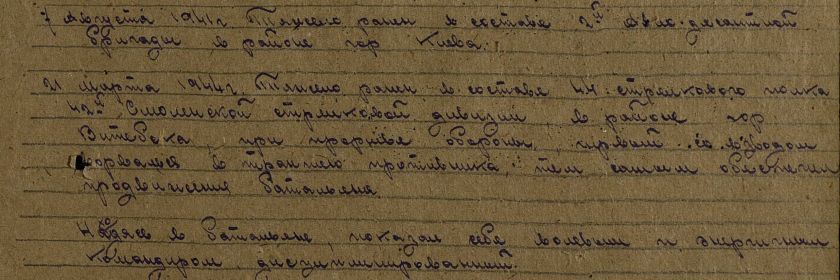 7 августа 1941г. Тяжело ранен в составе 2й авио-десантной
бригады в районе гор Киева.
21 марта 1944г. Тяжело ранен в составе 44 стрелкового полка
42й Смоленской стрелковой дивизии в районе гор
Витебска, при прорыве обороны, первый со взводом
ворвался в траншею противника, тем самым обеспечил
продвижение батальона.
Находясь в батальоне, показал себя волевым и энергичным
командиром, дисциплинированный.